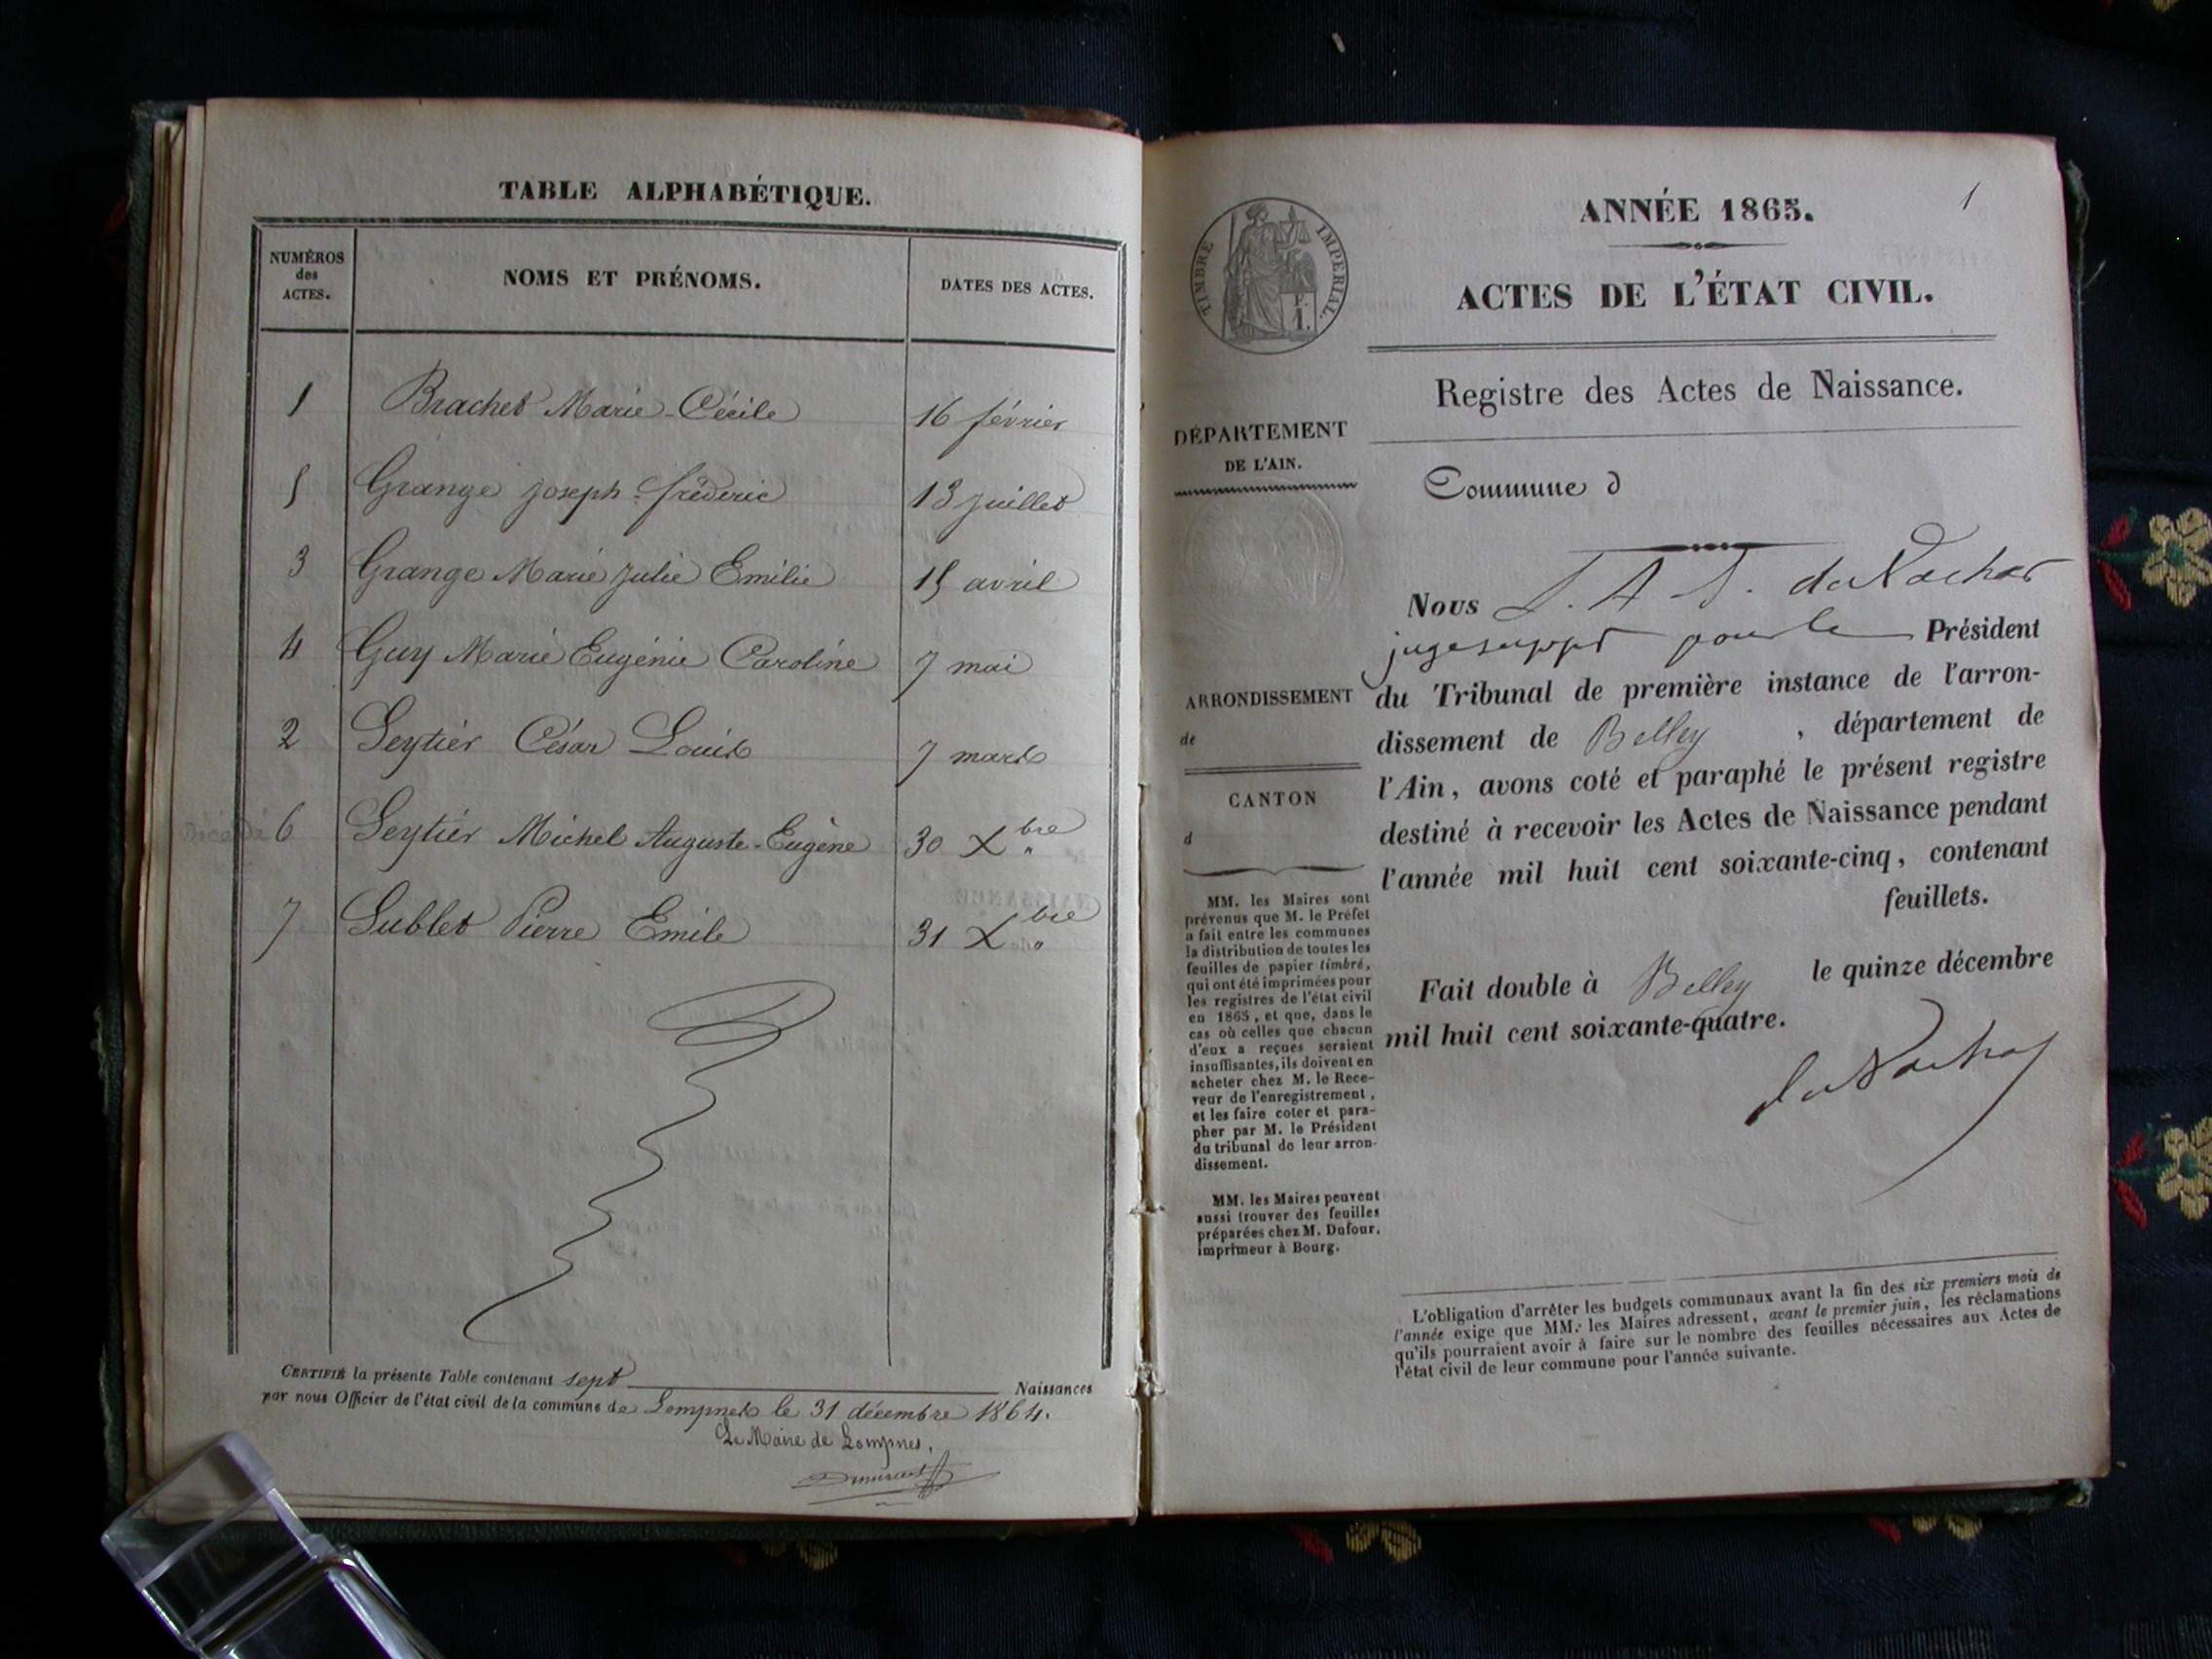 TABLE ALPHABÉTIQUE.
NUMÉROS
des
ACTES.
NOMS ET PRÉNOMS.
DATES DES ACTES.
1 Brachet Marie-Cécile 16 février
5 Grange joseph-frédéric 13 juillet
3 Grange Marie Julie Emilie 15 avril
4 Guy Marie Eugénie Caroline 7 mai
2 Seytier César Louis 7 mars
Décédé 6 Seytier Michel Auguste-Eugène 30 Xbre "
7 Sublet Pierre Emile 31 Xbre "
CERTIFIÉ la présente Table contenant sept Naissances
par nous Officier de l'état civil de la commune de Lompnes le 31 décembre 1864.
Le Maire de Lompnes,
1
ANNÉE 1865.
TIMBRE IMPÉRIAL.
F.
1.
ACTES DE L'ÉTAT CIVIL.
Registre des Actes de Naissance.
DÉPARTEMENT
DE L'AIN.
ARRONDISSEMENT
de
CANTON
d
MM. les Maires sont
prévenus que M. le Préfet
a fait entre les communes
la distribution de toutes les
feuilles de papier timbré,
qui ont été imprimées pour
les registres de l'état civil
en 1865, et que, dans le
cas où celles que chacun
d'eux a reçues seraient
insuffisantes, ils doivent en
acheter chez M. le Rece-
veur de l'enregistrement,
et les faire coter et para-
pher par M. le Président
du tribunal de leur arron-
dissement.
MM. les Maires peuvent
aussi trouver des feuilles
préparées chez M. Dufour,
imprimeur à Bourg.
Commune d
Nous
juge suppt pour le Président
du Tribunal de première instance de l'arron-
dissement de Belley , département de
l'Ain, avons coté et paraphé le présent registre
destiné à recevoir les Actes de Naissance pendant
l'année mil huit cent soixante-cinq, contenant
feuillets.
Fait double à Belley le quinze décembre
mil huit cent soixante-quatre.
L'obligation d'arrêter les budgets communaux avant la fin des six premiers mois de
l'année exige que MM. les Maires adressent, avant le premier juin, les réclamations
qu'ils pourraient avoir à faire sur le nombre des feuilles nécessaires aux Actes de
l'état civil de leur commune pour l'année suivante.